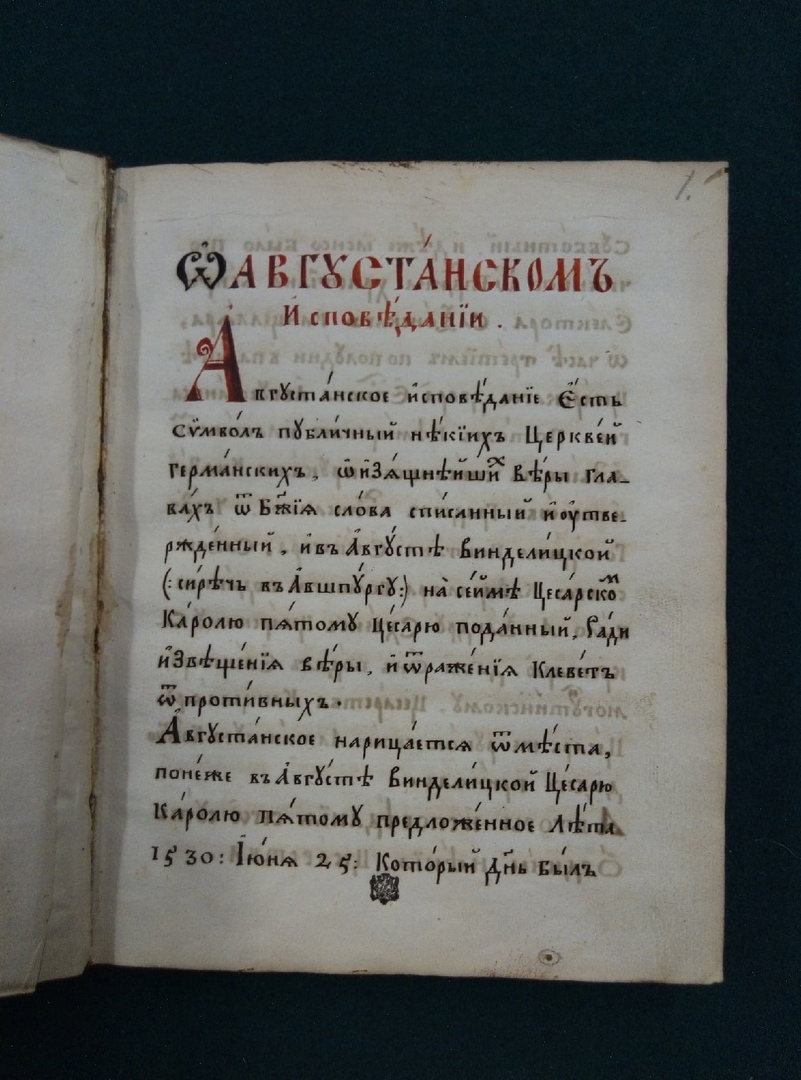 1.
Ѽ АВГꙋСТА́НСКОМЪ
И҆сповѣ́данїи.
А҆вгꙋста́нское и҆сповѣ́данїе Е҆́сть
сѵ́мволъ пꙋбли́чный нѣ́кїихъ Церкве́й
герма́нскихъ, ѡ҆ и҆зѧ́щнѣйшиⷯ вѣ́ры гла-
ва́хъ ѿ Бж҃їѧ сло́ва спи́санный и҆ ᲂу҆тве-
ржде́нный, и҆ въ А҆ѵгꙋ́стѣ Винделиц́кой
(: си́рѣчь въ А҆вшпꙋ́ргꙋ:) на̀ се́ймѣ Цеса́рскоⷨ
Ка́ролю пѧ́томꙋ Це́сарю пода́нный, Ра́ди
и҆звѣще́нїѧ вѣ́ры, и҆ ѿраже́нїѧ Клеве́тъ
ѿ проти́вныхъ.
А҆вгꙋста́нское нарица́етсѧ ѿ мѣ́ста,
поне́же въ А҆вгꙋ́стѣ Винделиц́кой Це́сарю
Ка́ролю пѧ́томꙋ предложе́нное Лѣ́та
1530: І҆ю́нѧ 25: Кото́рый дн҃ь бы́лъ